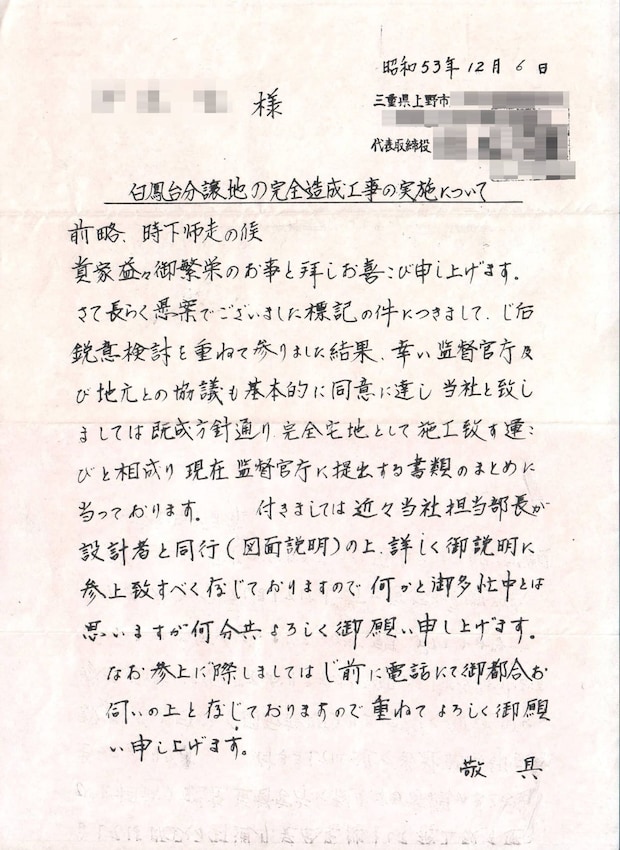 昭和53年12月6日
様
三重県上野市
代表取締役
白鳳台分譲地の完全造成工事の実施について
前略、時下師走の候
貴家益々御繁栄のお事と拝しお喜こび申し上げます。
さて長らく懸案でございました標記の件につきまして、じ后
鋭意検討を重ねて参りました結果、幸い監督官庁及
び地元との協議も基本的に同意に達し当社と致し
ましては既成方針通り完全宅地として施工致す運こ
びと相成り現在監督官庁に提出する書類のまとめに
当っております。 付きましては近々当社担当部長が
設計者と同行(図面説明)の上、詳しく御説明に
参上致すべく存じておりますので何かと御多忙中とは
思いますが何分共よろしく御願い申し上げます。
なお参上に際しましてはじ前に電話にて御都合お
伺いの上と存じておりますので重ねてよろしく御願
い申し上げます。
敬具